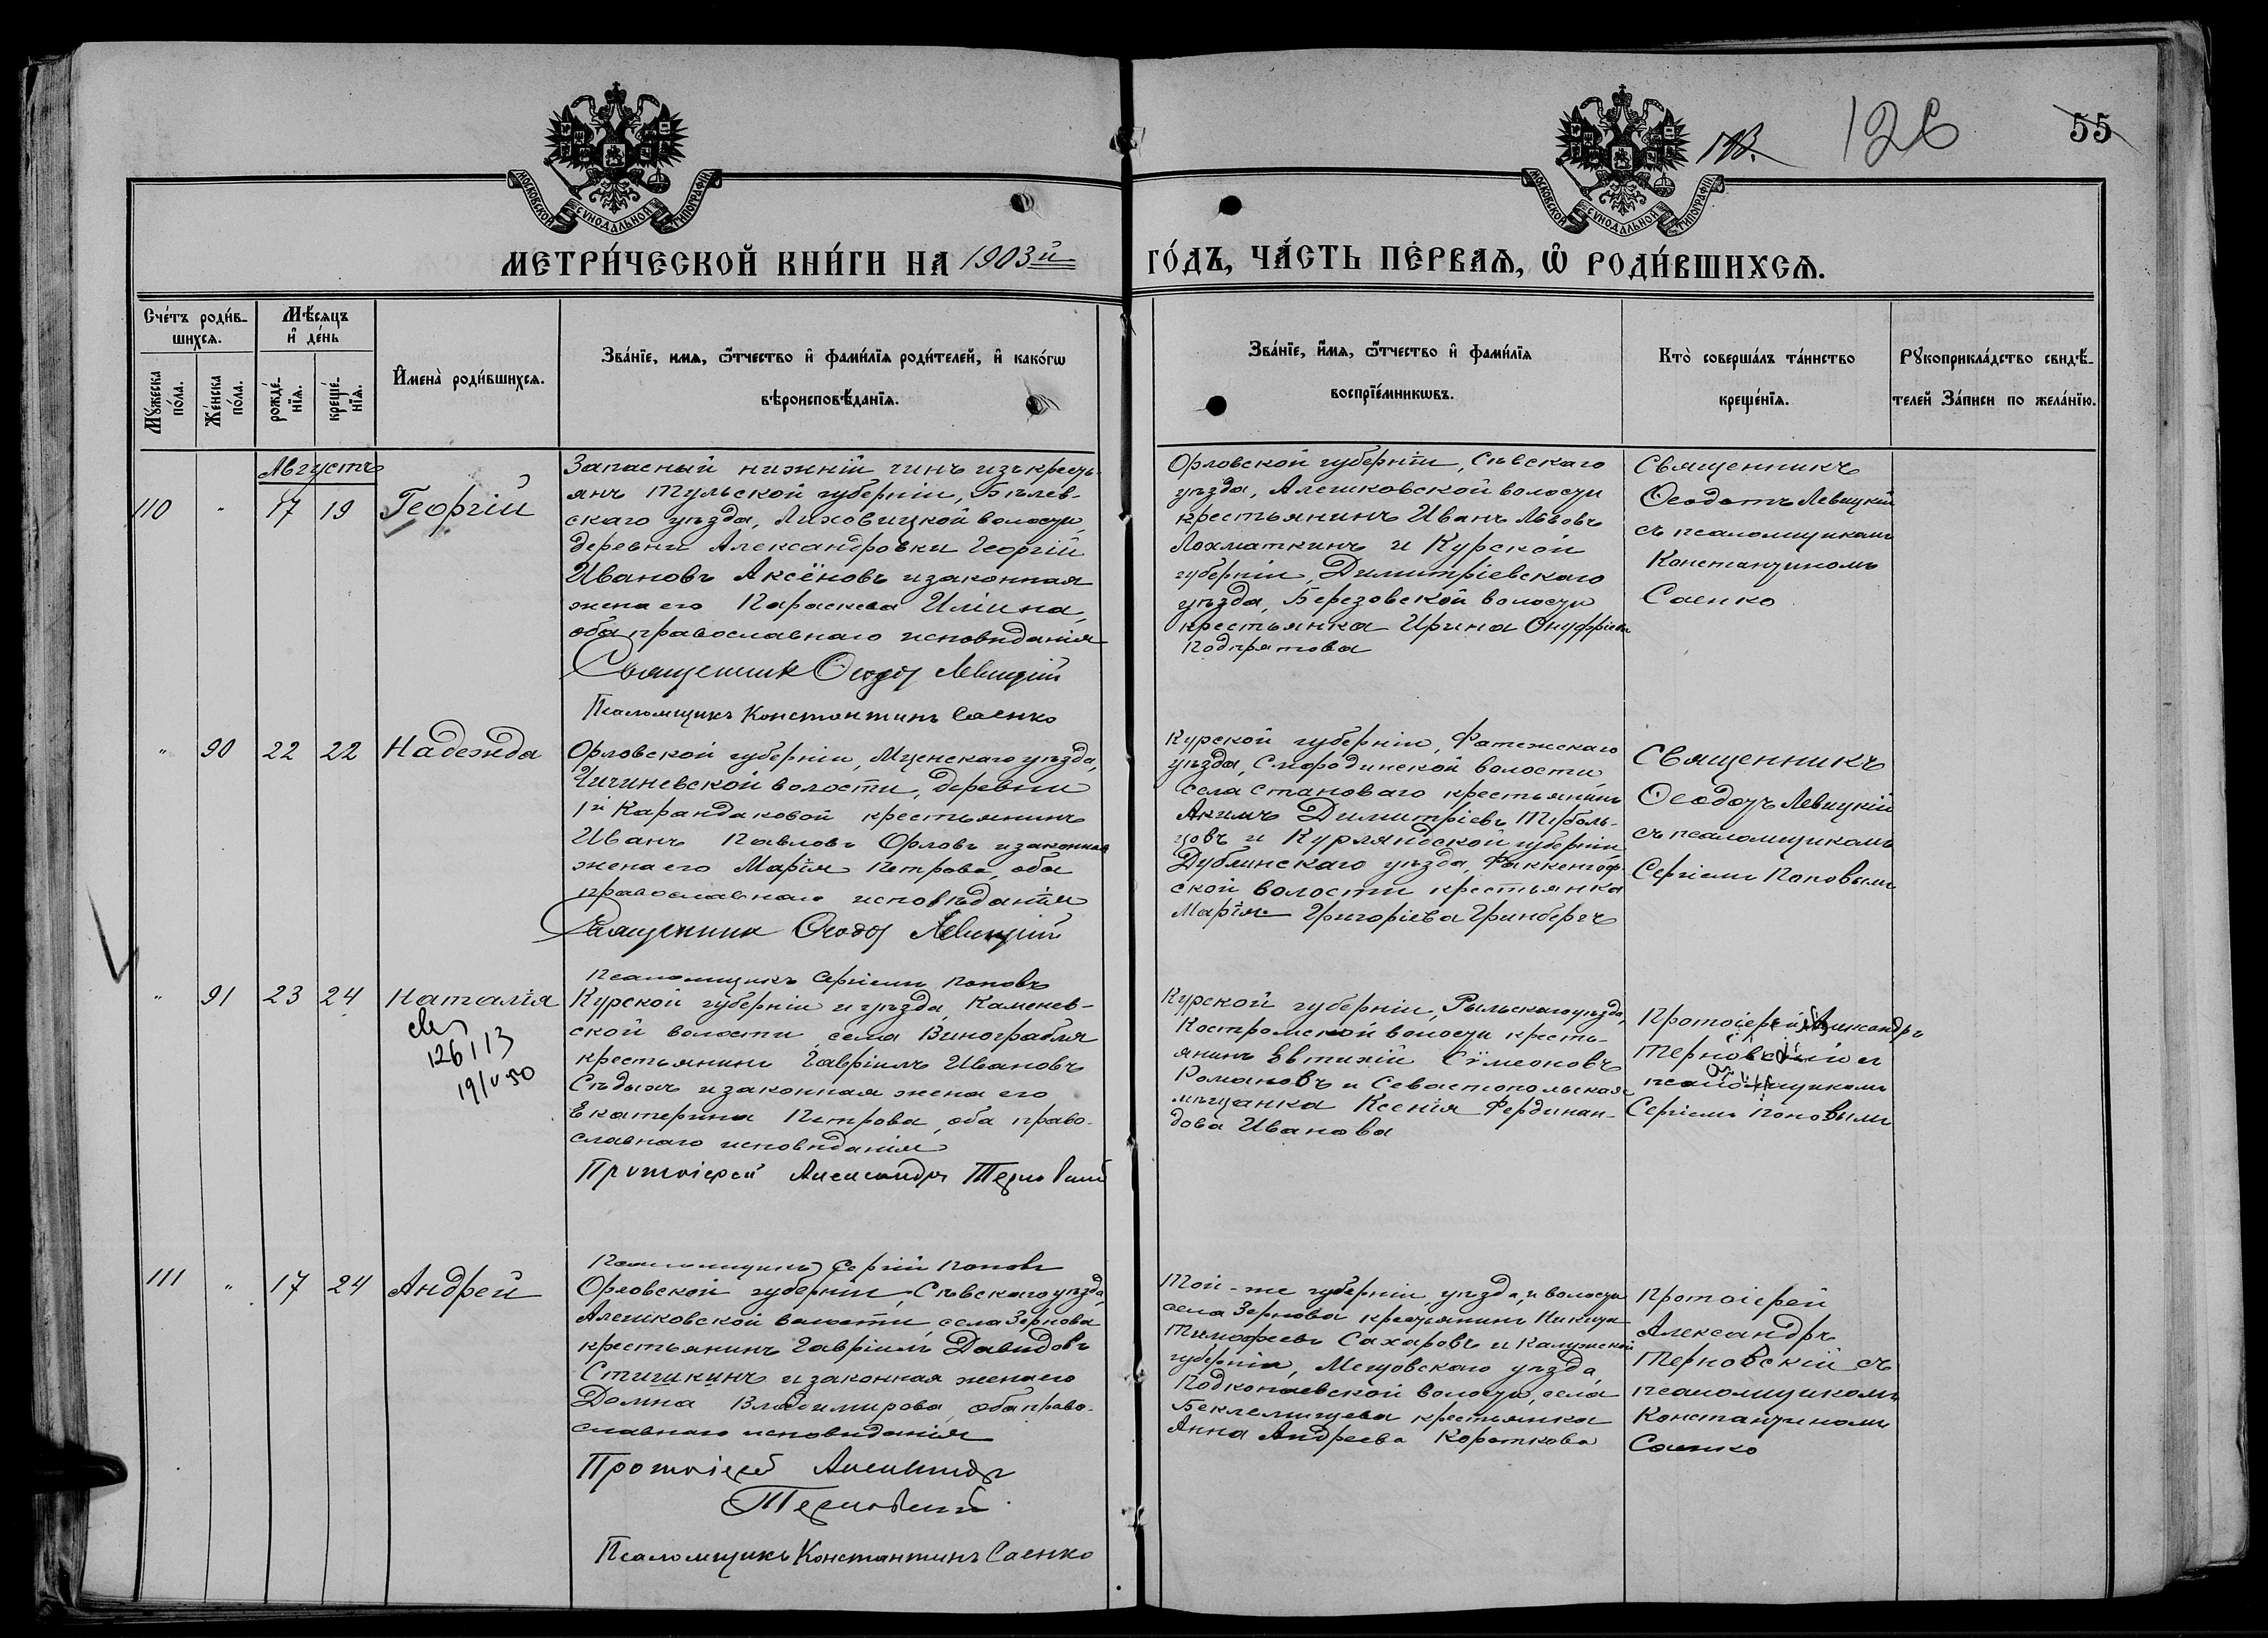 МОСКОВСКОЙ СѴНОДАЛЬНОЙ ТИПОГРАФІИ
МОСКОВСКОЙ СѴНОДАЛЬНОЙ ТИПОГРАФІИ
126
55
МЕТРИ́ЧЕСКОЙ КНИ́ГИ НА 1903й ГО́ДЪ, ЧА́СТЬ ПЕ́РВАѦ, Ѽ РОДИ́ВШИХСѦ.
Сче́тъ роди́в-
шихсѧ.
Му́жеска по́ла.
Же́нска по́ла.
Мѣ́сяцъ
и де́нь
рожде́-
нїѧ.
креще́-
нїѧ.
Имена̀ роди́вшихсѧ.
Зва́нїе, имѧ, ѿтчество и фами́лїѧ роди́телей, и како́гѡ
вѣроисповѣ́данїѧ.
Зва́нїе, и́мѧ, ѿтчество и фами́лїѧ
воспрїе́мникѡвъ.
Кто̀ соверша́лъ та́инство
креще́нїѧ.
Рꙋкоприкла́дство свидѣ́-
телей За́писи по жела́нїю.
Августъ
110 " 17 19 Георгій
Запасный нижній чинъ изъ кресть-
янъ Тульской губерніи, Бѣлев-
скаго уѣзда, Лиховицкой волости,
деревни Александровки Георгій
Ивановъ Аксёновъ и законная
жена его Параскева Иліина,
оба православнаго исповѣданія
Священникъ Ѳеодотъ Левицкій
Псаломщикъ Константинъ Саенко
Орловской губерніи, Сѣвскаго
уѣзда, Алешковской волости
крестьянинъ Иванъ Львовъ
Лохматкинъ и Курской
губерніи, Димитріевскаго
уѣзда, Березовской волости
крестьянка Ирина Онуфріева
Подпрятова
Священникъ
Ѳеодотъ Левицкій
съ псаломщикомъ
Константиномъ
Саенко
" 90 22 22 Надежда
Орловской губерніи, Мценскаго уѣзда,
Чичиневской волости, деревни
1й Карандаковой крестьянинъ
Иванъ Павловъ Орловъ и законная
жена его Марія Петрова, оба
православнаго исповѣданія
Священникъ Ѳеодотъ Левицкій
Псаломщикъ Сергіемъ Поповъ
Курской губерніи, Фатежскаго
уѣзда, Смородинской волости
села Становаго крестьянинъ
Акимъ Димитріевъ Туболь-
цовъ и Курляндской губерніи
скаго уѣзда,
ской волости крестьянка
Марія Григоріева Гринбергъ
Священникъ
Ѳеодотъ Левицкій
съ псаломщикомъ
Сергіемъ Поповымъ
" 91 23 24 Наталія
126113
19/V 50
Курской губерніи и уѣзда, Каменев-
ской волости, села Винограбля
крестьянинъ Гавріилъ Ивановъ
Сѣдыхъ и законная жена его
Екатерина Петрова, оба право-
славнаго исповѣданія
Протоіерей Александръ Терновскій
Псаломщикъ Сергій Поповъ
Курской губерніи, Рыльскаго уѣзда,
Костромской волости кресть-
янинъ Евтихій Сѵмеоновъ
Романовъ и Севастопольская
мѣщанка Ксенія Фердинан-
дова Иванова
Протоіерей Александръ
Терновскій съ
псаломщикомъ
Сергіемъ Поповымъ
111 " 17 24 Андрей
Орловской губерніи, Сѣвскаго уѣзда,
Алешковской волости, села Зернова
крестьянинъ Гавріилъ Давидовъ
Стишкинъ и законная жена его
Домна Владимирова, оба право-
славнаго исповѣданія
Протоіерей Александръ
Терновскій
Псаломщикъ Константинъ Саенко
Той-же губерніи, уѣзда, и волости
села Зернова крестьянинъ Никита
Тимофеевъ Сахаровъ и Калужской
губерніи, Мещовскаго уѣзда,
Подкопаевской волости, села
Беклемищева крестьянка
Анна Андреева Короткова
Протоіерей
Александръ
Терновскій съ
псаломщикомъ
Константиномъ
Саенко